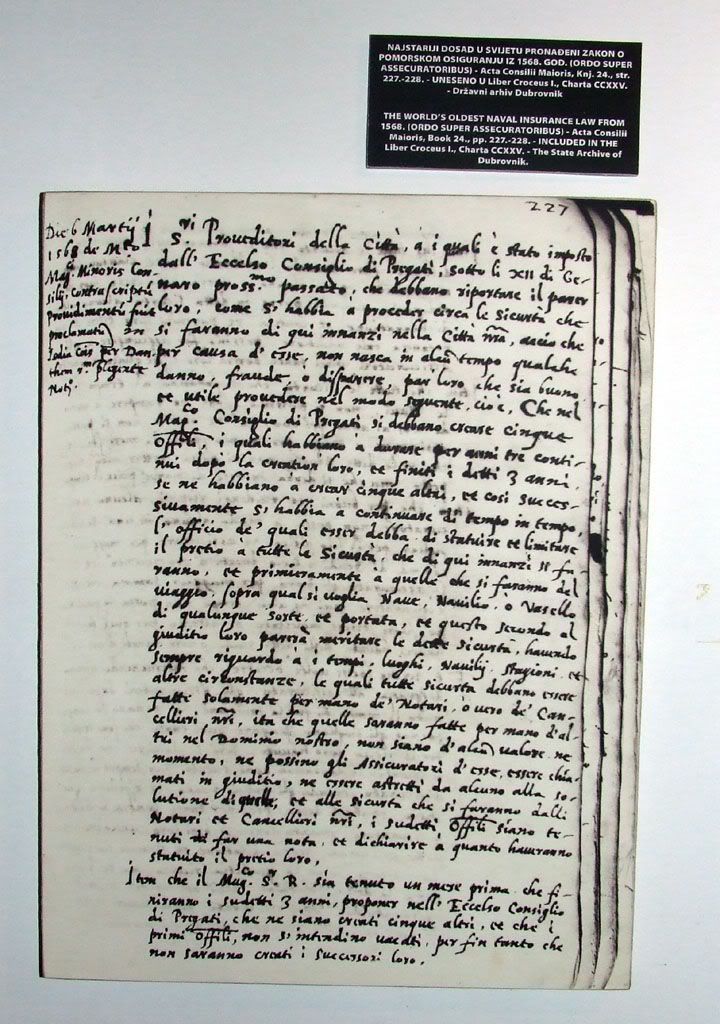 NAJSTARIJI DOSAD U SVIJETU PRONAĐENI ZAKON O
POMORSKOM OSIGURANJU IZ 1568. GOD. (ORDO SUPER
ASSECURATORIBUS) - Acta Consilii Maioris, Knj. 24., str.
227.-228. - UNESENO U Liber Croceus I., Charta CCXXV.
- Državni arhiv Dubrovnik
THE WORLD'S OLDEST NAVAL INSURANCE LAW FROM
1568. (ORDO SUPER ASSECURATORIBUS) - Acta Consilii
Maioris, Book 24., pp. 227.-228. - INCLUDED IN THE
Liber Croceus I., Charta CCXXV. - The State Archive of
Dubrovnik.
227
Die 6 Martij
1568 de
Mag. Minoris Con-
silij, contrascriptū
Prouidimentū fuit
proclamatū
per Dan.
them
Notm
I Sri Proueditori della Città, à i quali è stato imposto
dall' Eccelso Consiglio di Pregati, sotto li XII di Ge-
naro prossmo passato, che debbano riportare il parer
loro, come s' habbia à proceder circa le sicurtà che
si faranno di qui innanzi nella Città nrã, accio che
per causa d' esse, non nasca in alcũ tempo qualche
danno, fraude, ò disparere, par' loro che sia buono
et utile prouedere nel modo seguente, cio è, Che nel
Magco Consiglio di Pregati si debbano creare cinque
Offili, i quali habbiano à durare per anni tre conti-
nui dopò la creation loro, et finiti i detti 3 anni,
se ne habbiano à crear cinque altri, et così succes-
siuamente s' habbia à continuare di tempo in tempo,
l' officio de' quali esser debba di statuire et limitare
il pretio à tutte le sicurtà, che di qui innanzi si fa-
ranno, et primieramente à quelle che si faranno del
viaggio, sopra qual si voglia Naue, Nauilio, o Vasello
di qualunque sorte, et portata, et questo secondo al
giuditio loro parerà meritare le dette sicurtà, hauendo
sempre riguardo à i tempi, luoghi, Nauilij, stagioni, et
altre circonstanze, le quali tutte sicurtà debbano essere
fatte solamente per mano de' Notari, o vero de' Can-
cellieri nrĩ, ita che quelle saranno fatte per mano d' al-
tri nel Dominio nostro, non siano d' alcũ valore, ne
momento, ne possino gli Assicuratori d' esse, essere chia-
mati in giuditio, ne essere astretti da alcuno alla so-
lutione di quelle, et alle sicurtà che si faranno dalli
Notari et Cancellieri nrĩ, i sudetti Offili siano te-
nuti di far una nota, et dichiarire à quanto haueranno
statuito il pretio loro,
Item che il Magco Sr R. sia tenuto un mese prima che fi-
niranno i sudetti 3 anni, proponer nell' Eccelso Consiglio
di Pregati, che ne siano creati cinque altri, et che i
primi Offili, non s' intendino uacati, per fin tanto che
non saranno creati i successori loro.